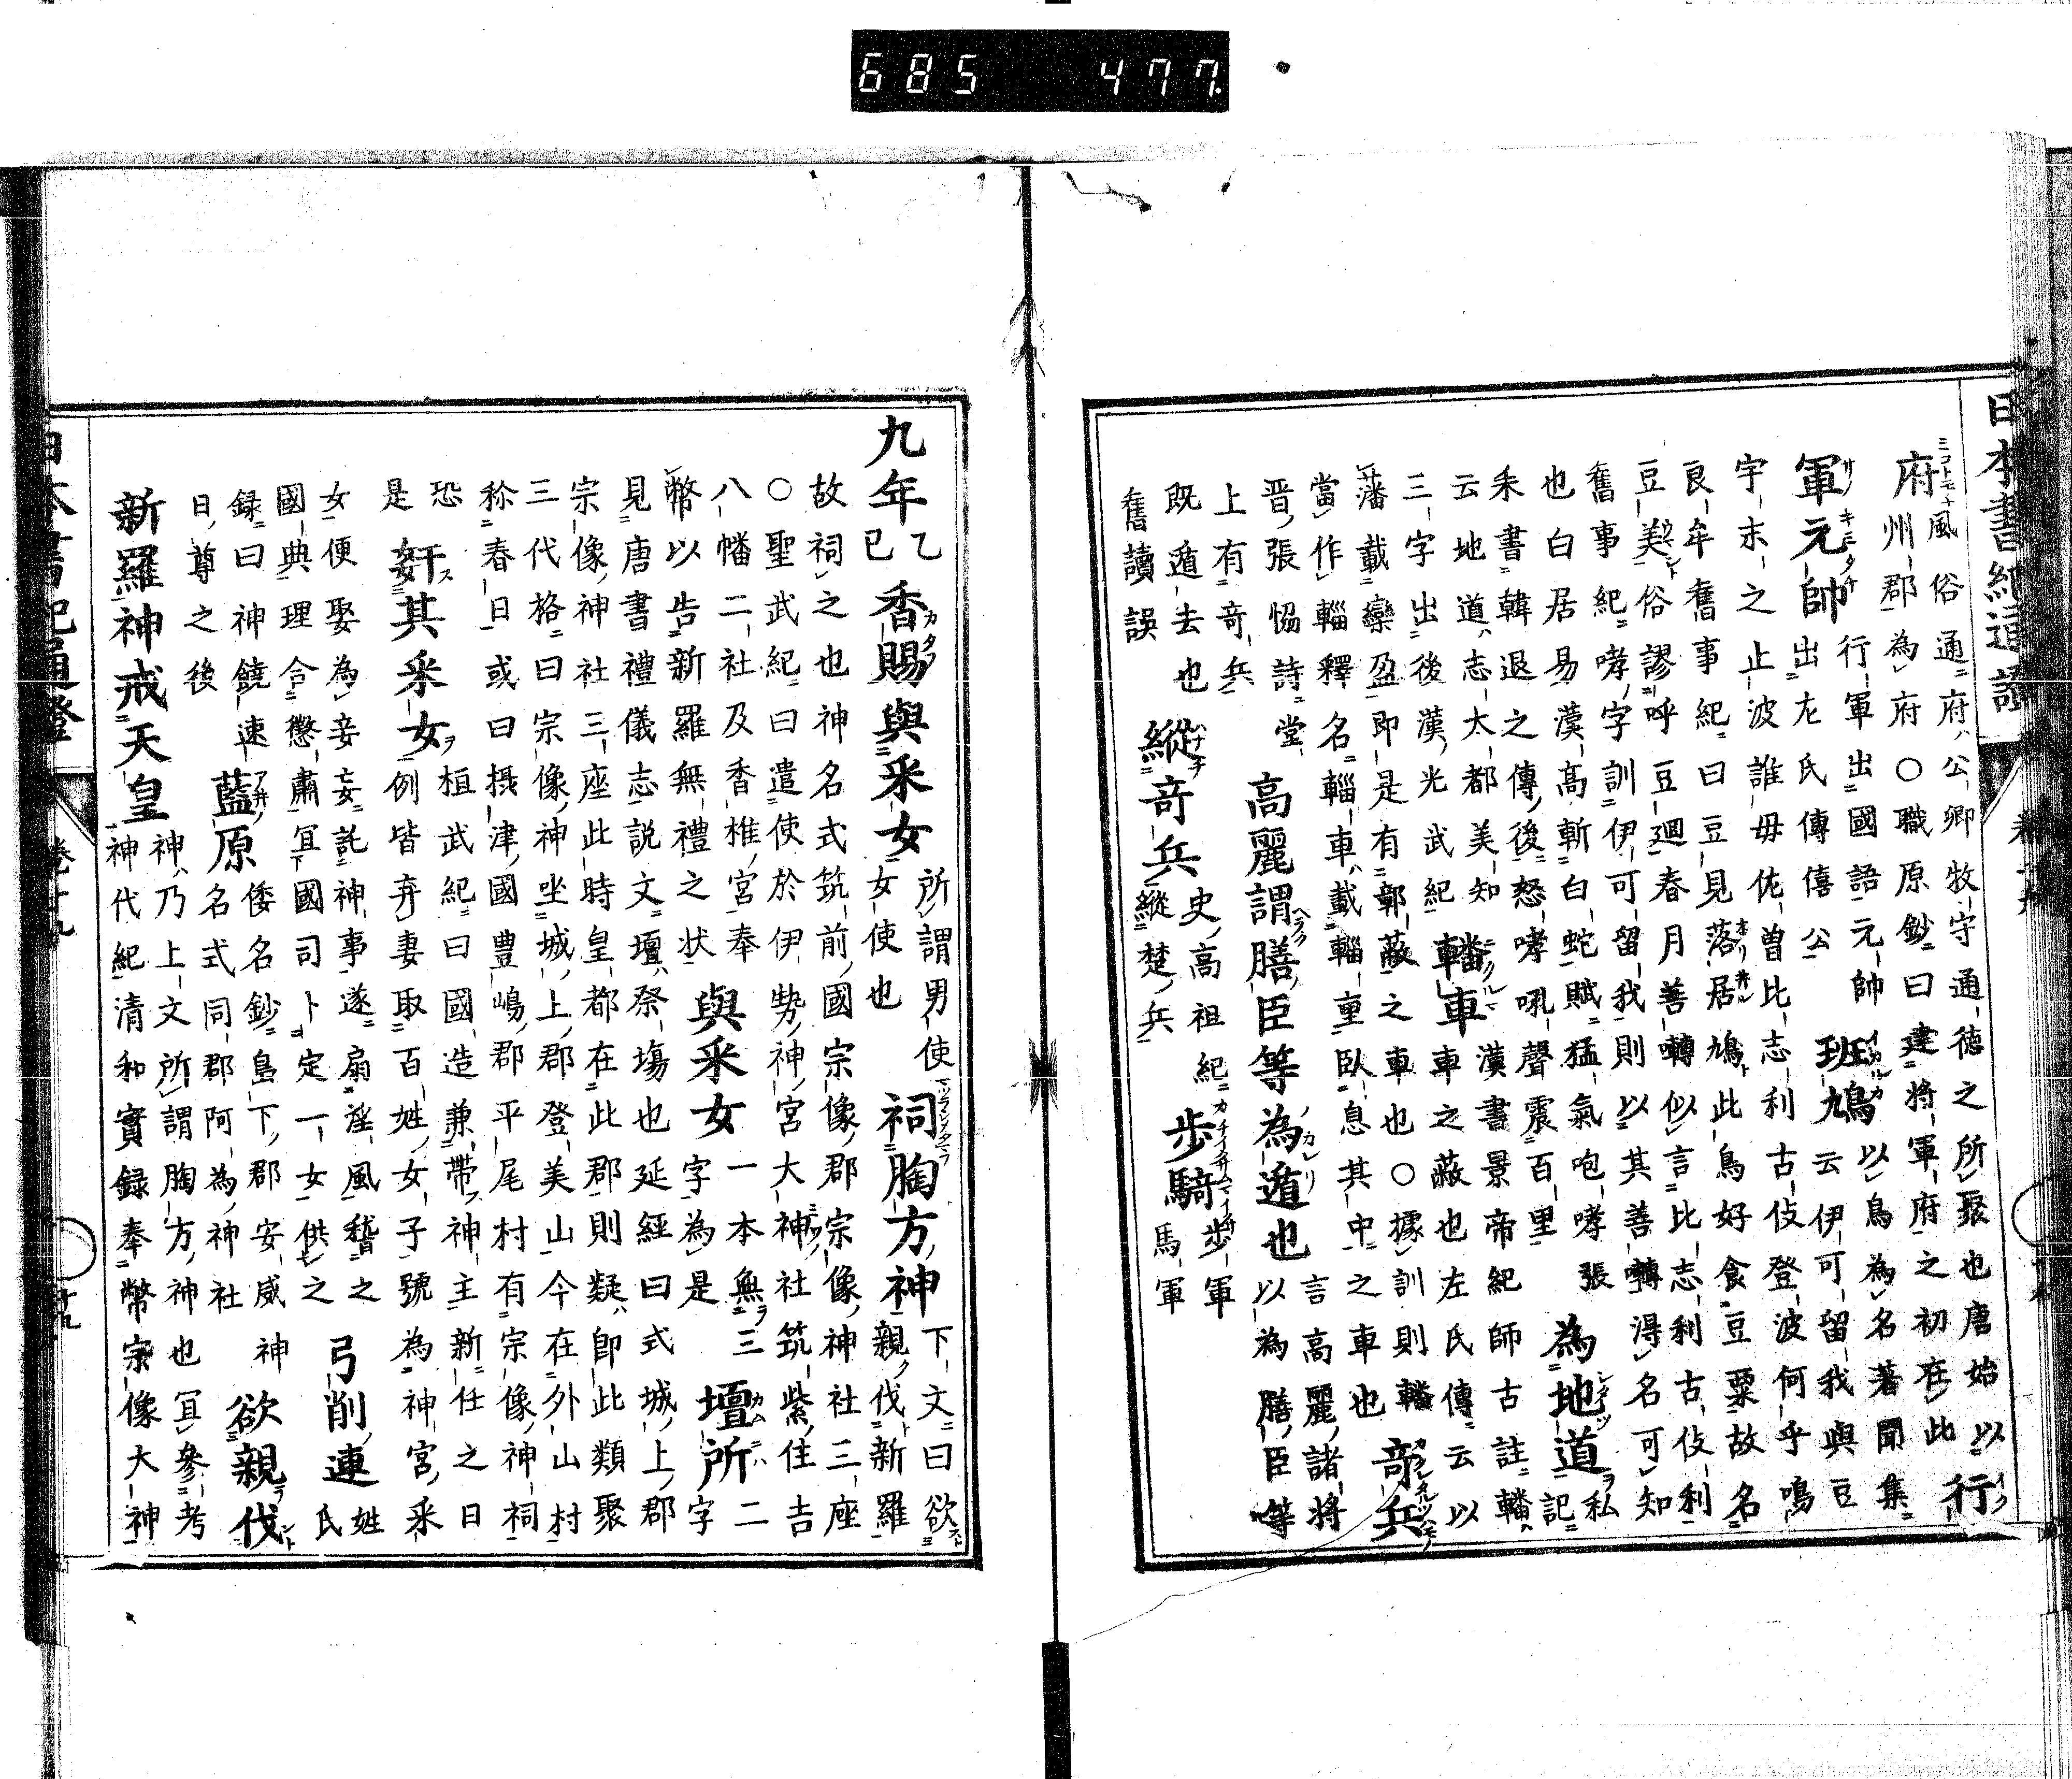 685 477
日本書紀通證
府 風俗通府公卿牧守通德之所聚也唐始以
州郡為府○職原鈔曰建將軍府之初在此 行
軍元帥 行軍出國語元帥
出左氏傳僖公 班鳩 以鳥為名著聞集
云伊可留我與豆
宇末之止波誰毋佐曽比志利古伎登波何乎鳴
良牟舊事紀曰豆見落居鳩此鳥好食豆粟故名
豆美俗謬呼豆廻春月善囀似言比志利古伎利
舊事紀哮字訓伊可留我則以其善囀得名可知
也白居易漢高斬白蛇賦猛氣咆哮張 為地道 私
耒書韓退之傳後怒哮吼聲震百里 記
云地道志太都美知 轓車 漢書景帝紀師古註轓
三字出後漢光武紀 車之蔽也左氏傳云以
藩載欒盈即是有鄣蔽之車也○據訓則轓
當作輜釋名輜車載輜重臥息其中之車也 竒兵
晋張
恊詩
堂
上有竒兵 高麗謂膳臣等為遁也 言高麗諸將
以為膳臣等
既遁去也
舊讀誤 縱竒兵 史高祖紀
縱楚兵 步騎 步軍
馬軍
九年 乙巳 香賜與采女 所謂男使
女使也 祠胸方神 下文曰欲
親伐新羅
故祠之也神名式筑前國宗像郡宗像神社三座
○聖武紀曰遣使於伊勢神宮大神社筑紫住吉
八幡二社及香椎宮奉
幣以告新羅無禮之状 與采女 一本無三
字為是 壇所 二
字
見唐書禮儀志説文壇祭塲也延經曰式城上郡
宗像神社三座此時皇都在此郡則疑即此類聚
三代格曰宗像神坐城上郡登美山今在外山村
稱春日或曰摂津國豊嶋郡平尾村有宗像神祠
恐
是 奸其采女 桓武紀曰國造兼帶神主新任之日
例皆弃妻取百姓女子號為神宮采
女便娶為妾妄託神事遂扇淫風稽之
國典理合懲肅冝國司卜定一女供之 弓削連 姓
氏
録曰神饒速
日尊之後 藍原 倭名鈔島下郡安威
名式同郡阿為神社 神 欲親伐
新羅神戒天皇 神乃上文所謂胸方神也冝參考
神代紀清和實録奉幣宗像大神
日本書紀通證 卷十九 十九